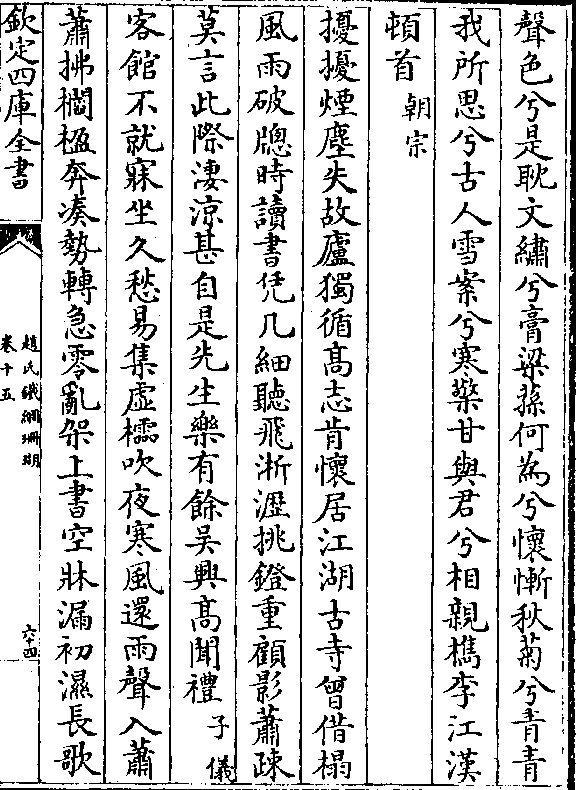 聲色兮是耽文繡兮膏粱蓀何為兮懷慚秋菊兮青青
我所思兮古人雪案兮寒檠甘與君兮相親檇李江漢
頓首朝宗
擾擾煙塵失故廬獨循髙志肯懷居江湖古寺曾借榻
風雨破牕時讀書凭几細聽飛淅瀝挑鐙重顧影蕭疎
莫言此際淒涼甚自是先生樂有餘吴興髙聞禮子儀
客館不就寐坐久愁易集虚檽吹夜寒風還雨聲入蕭
蕭拂櫩楹奔凑勢轉急零亂架上書空牀漏初濕長歌
欽定四庫全書
趙氏鐵網珊瑚
卷十五
六十四